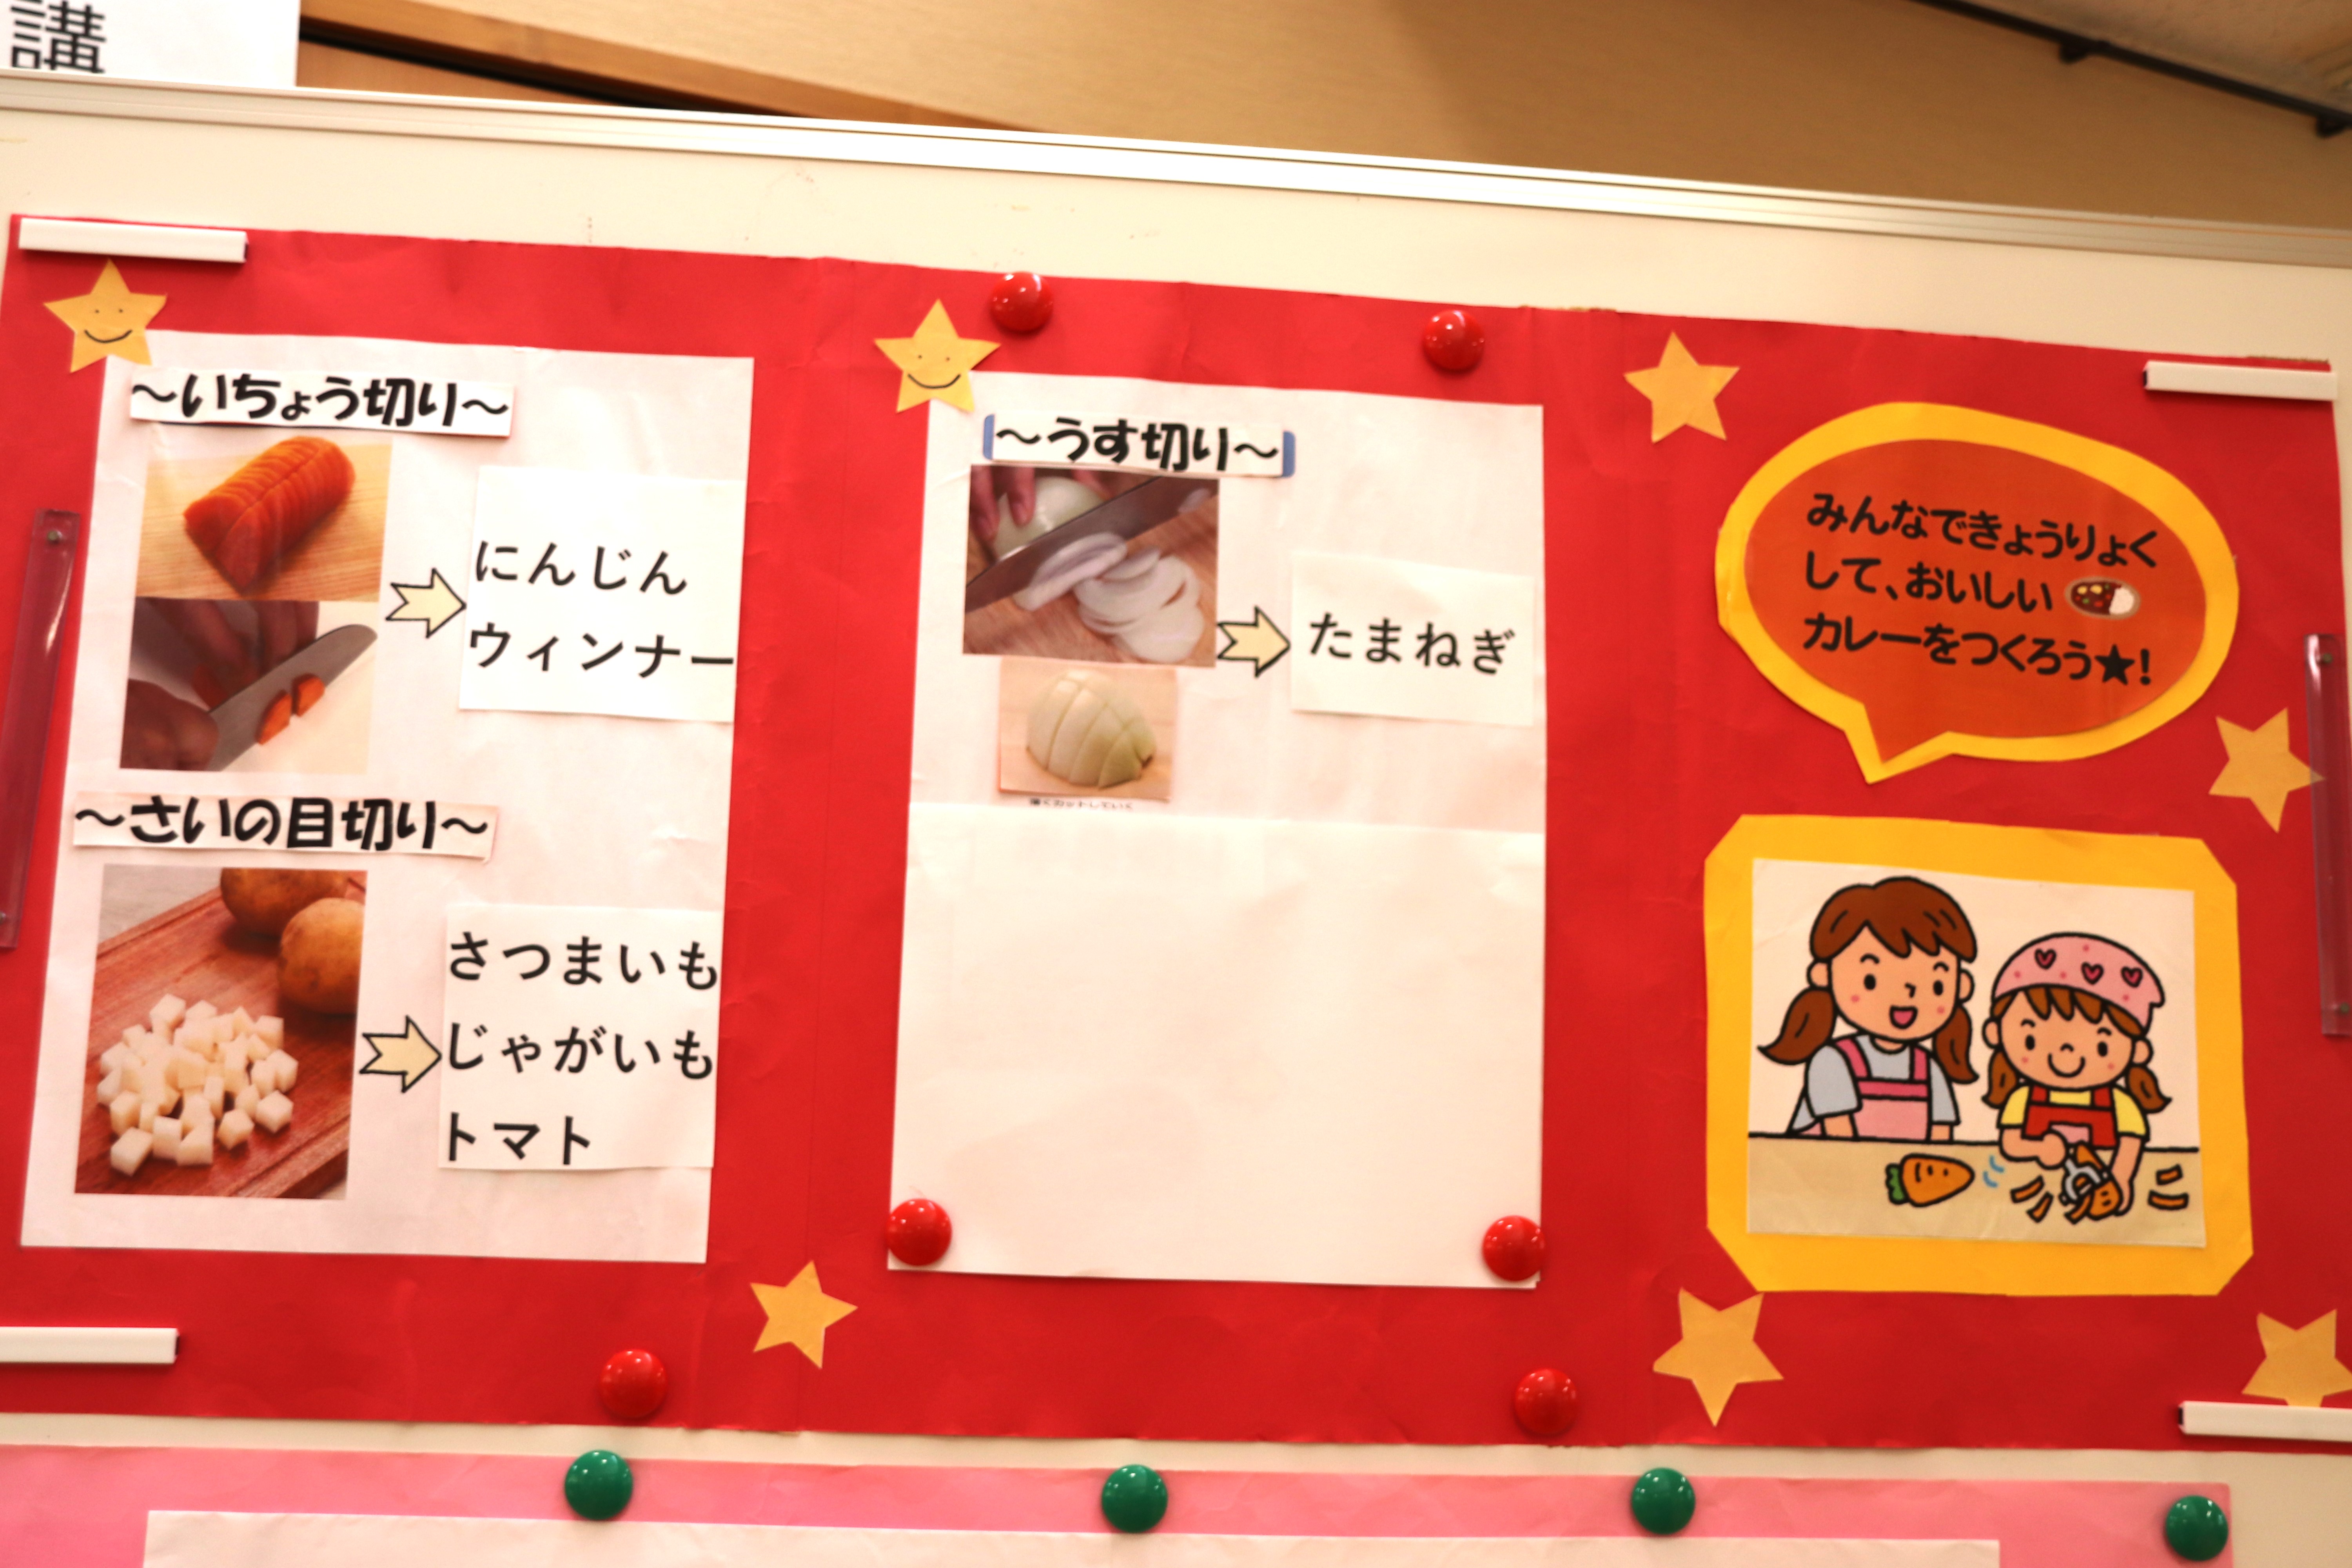 講
～いちょう切り～
にんじん
ウィンナー
～さいの目切り～
さつまいも
じゃがいも
トマト
～うす切り～
たまねぎ
薄くカットしていく
みんなできょうりょく
して、おいしい
カレーをつくろう★!